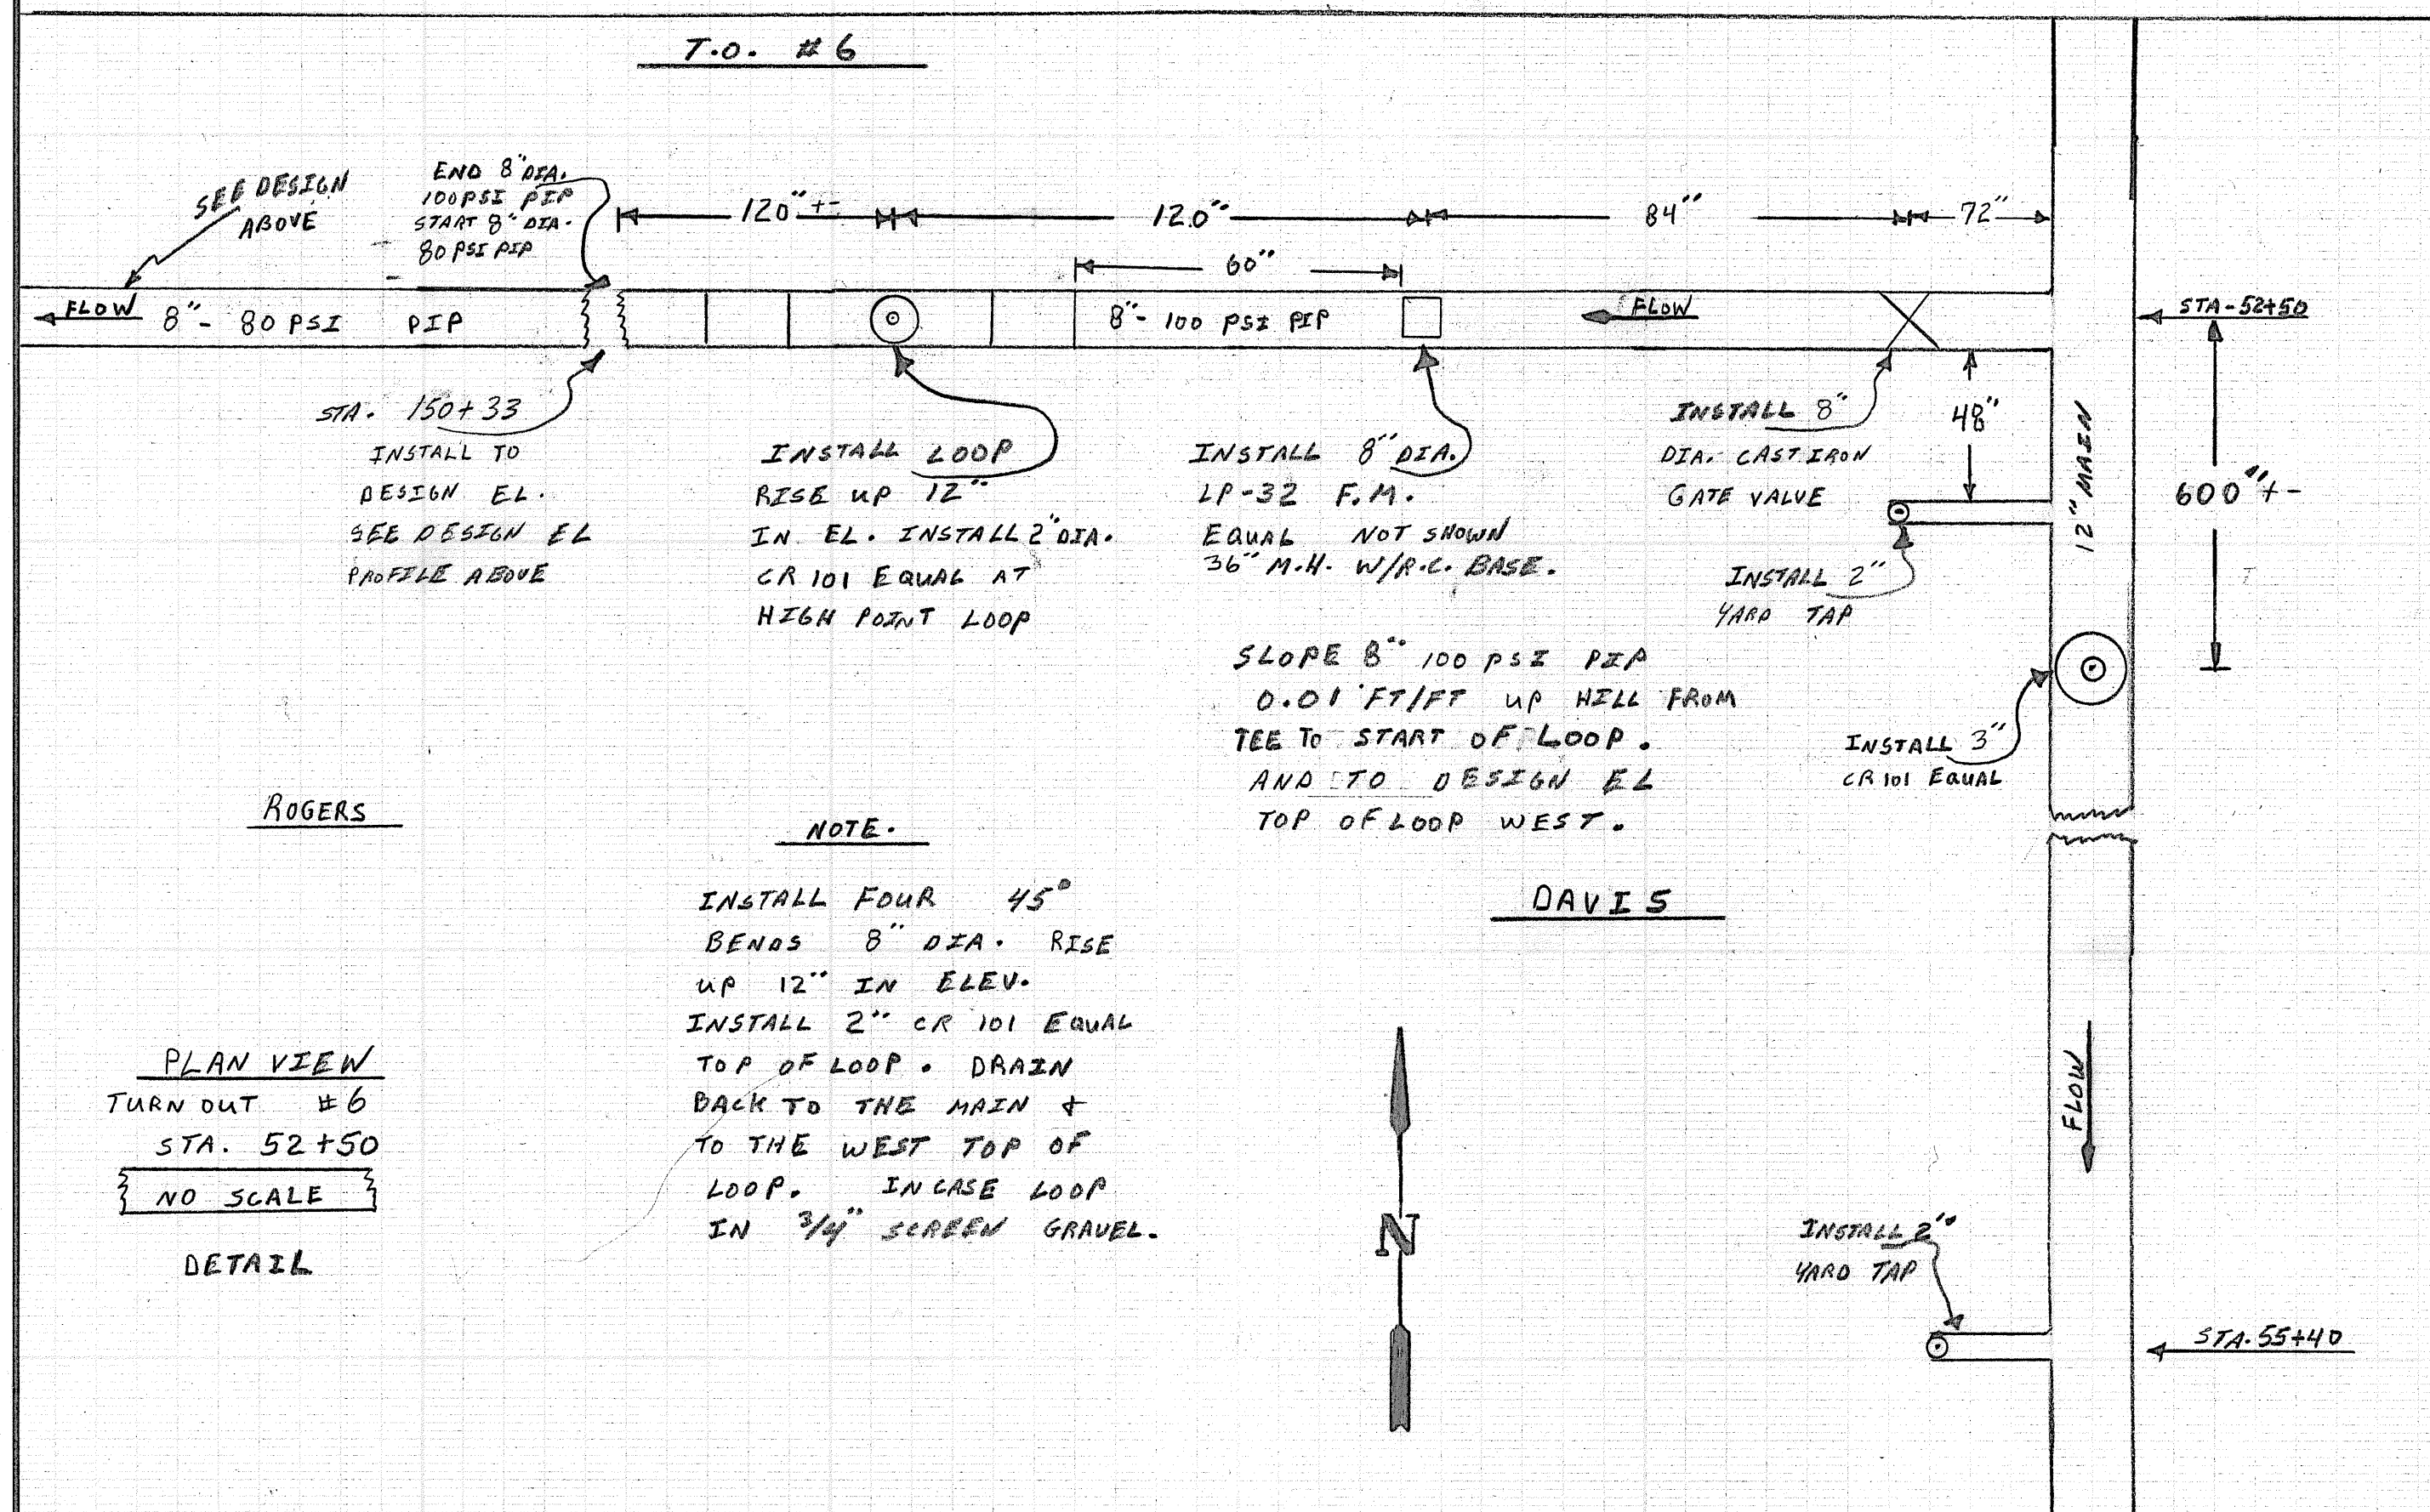 T.O. #6
SEE DESIGN
ABOVE
END 8" DIA.
100PSI PIP
START 8" DIA.
80 PSI PIP
120" +-
120"
84"
72"
60"
FLOW
8"- 80 PSI PIP
8"- 100 PSI PIP
FLOW
STA-52+50
STA. 150+33
INSTALL TO
DESIGN EL.
SEE DESIGN EL
PROFILE ABOVE
INSTALL LOOP
RISE UP 12"
IN EL. INSTALL 2" DIA.
CR 101 EQUAL AT
HIGH POINT LOOP
INSTALL 8" DIA.
LP-32 F.M.
EQUAL NOT SHOWN
36" M.H. W/R.C. BASE.
INSTALL 8"
DIA. CAST IRON
GATE VALVE
48"
12" MAIN
600" +-
INSTALL 2"
YARD TAP
SLOPE 8" 100 PSI PIP
0.01 FT/FT UP HILL FROM
TEE TO START OF LOOP.
AND TO DESIGN EL
TOP OF LOOP WEST.
INSTALL 3"
CR 101 EQUAL
ROGERS
NOTE.
INSTALL FOUR 45°
BENDS 8" DIA. RISE
UP 12" IN ELEV.
INSTALL 2" CR 101 EQUAL
TOP OF LOOP. DRAIN
BACK TO THE MAIN &
TO THE WEST TOP OF
LOOP. INCASE LOOP
IN 3/4" SCREEN GRAVEL.
DAVIS
PLAN VIEW
TURN OUT #6
STA. 52+50
NO SCALE
DETAIL
N
FLOW
INSTALL 2"
YARD TAP
STA. 55+40